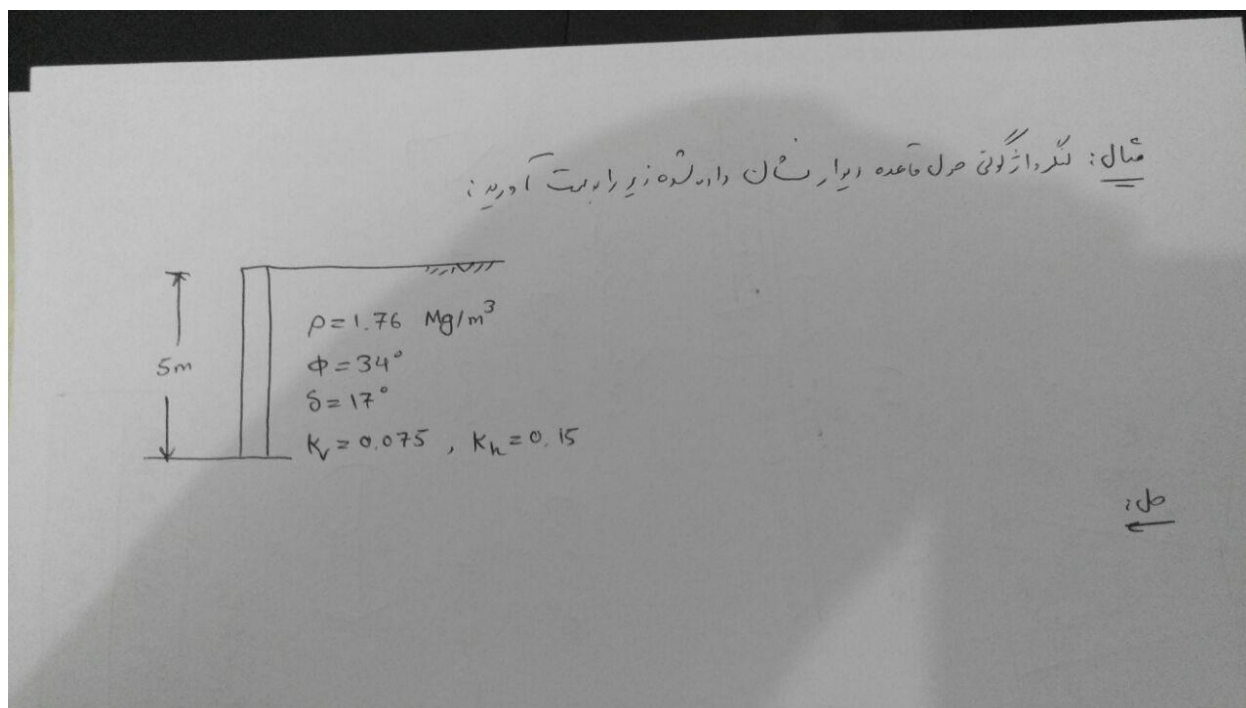 مثال: لنگر واژگونی حول قاعده دیوار نشان داده شده زیر را بدست آورید:
5m
ρ = 1.76 Mg/m³
Φ = 34°
δ = 17°
Kv = 0.075 , Kh = 0.15
حل: